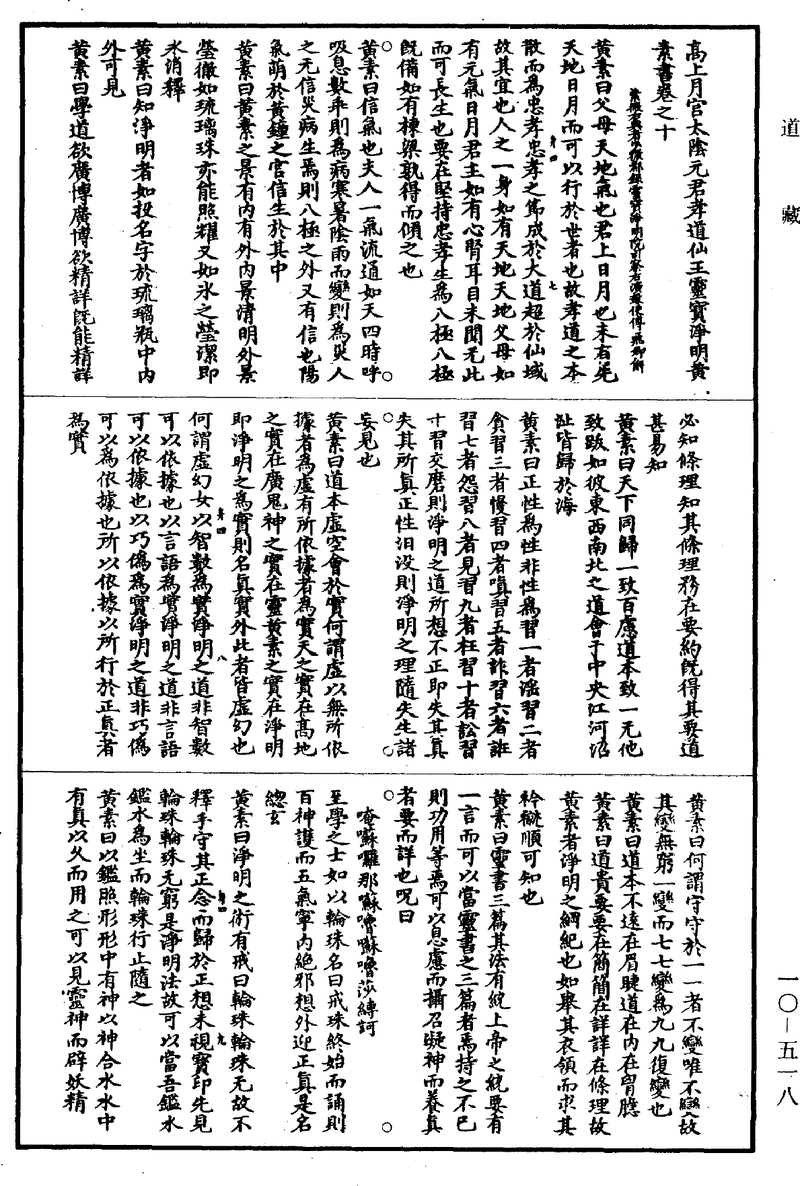 道藏
高上月宮太陰元君孝道仙王靈寶淨明黃
素書卷之十
黃素曰父母天地氣也君上日月也未有逆
天地日月而可以行於世者也故孝道之本
散而為忠孝忠孝之篤成於大道超於仙域
故其宜也人之一身如有天地天地父母如
有元氣日月君主如有心腎耳目未聞无此
而可長生也要在堅持忠孝生為八極八極
既備如有棟梁孰得而傾之也
黃素曰信氣也夫人一氣流通如天四時呼
吸息數乖則為病寒暑陰雨而變則為災人
之无信災病生焉則八極之外又有信也陽
氣萌於黃鐘之宮信生於其中
黃素曰黃素之景有內有外內景清明外景
瑩徹如琉璃珠亦能照耀又如氷之瑩潔即
水消釋
黃素曰知淨明者如投名字於琉璃瓶中內
外可見
黃素曰學道欲廣博廣博欲精詳既能精詳
必知條理知其條理務在要約既得其要道
甚易知
黃素曰天下同歸一致百慮道本致一无他
致跋如彼東西南北之道會于中央江河沼
沚皆歸於海
黃素曰正性為性非性為習一者淫習二者
貪習三者慢習四者嗔習五者詐習六者誑
習七者怨習八者見習九者枉習十者訟習
十習交磨則淨明之道所想不正即失其真
失其所真正性汨沒則淨明之理隨失生諸
妄見也
黃素曰道本虛空會於實何謂虛以無所依
據者為虛有所依據者為實天之實在高地
之實在廣鬼神之實在靈黃素之實在淨明
即淨明之為實則名真實外此者皆虛幻也
何謂虛幻女以智數為實淨明之道非智數
可以依據也以言語為實淨明之道非言語
可以依據也以巧偽為實淨明之道非巧偽
可以為依據也所以依據以所行於正真者
為實
黃素曰何謂守守於一一者不變唯不變故
其變無窮一變而七七變為九九復變也
黃素曰道本不遠在眉睫道在內在胷臆
黃素曰道貴要要在簡簡在詳詳在條理故
黃素者淨明之綱紀也如舉其衣領而求其
衿襚順可知也
黃素曰靈書三篇其法有統上帝之統要有
一言而可以當靈書之三篇者焉持之不已
則功用等焉可以息慮而攝召凝神而養真
者要而詳也呪曰
唵蘇囉那蘇嚕蘇嚕莎縛訶
至學之士如以輪珠名曰戒珠終始而誦則
百神護而五氣寧內絕邪想外迎正真是名
總玄
黃素曰淨明之術有戒曰輪珠輪珠无故不
釋手守其正念而歸於正想未視寶印先見
輪珠輪珠无窮是淨明法故可以當吾鑑水
鑑水為坐而輪珠行止隨之
黃素曰以鑑照形形中有神以神合水水中
有真以久而用之可以見靈神而辟妖精
一〇－五一八